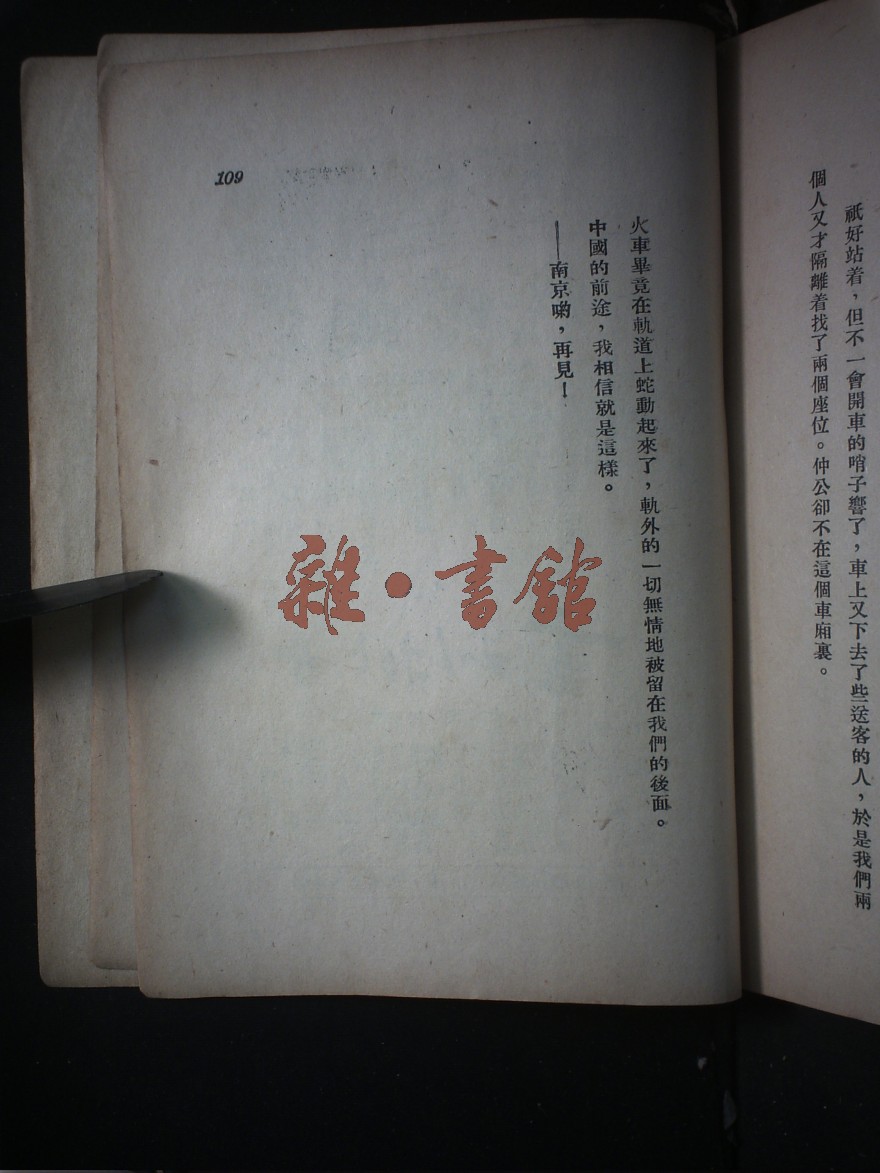 祇好站着，但不一會開車的哨子響了，車上又下去了些送客的人，於是我們兩
個人又才隔離着找了兩個座位。仲公卻不在這個車廂裏。
火車畢竟在軌道上蛇動起來了，軌外的一切無情地被留在我們的後面。
中國的前途，我相信就是這樣。
——南京喲，再見！
109
雜·書館